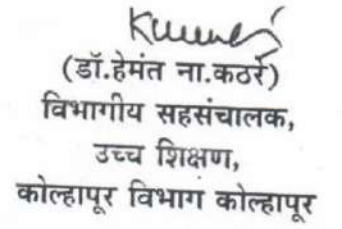 (डॉ.हेमंत ना.कठरे)
विभागीय सहसंचालक,
उच्च शिक्षण,
कोल्हापूर विभाग कोल्हापूर